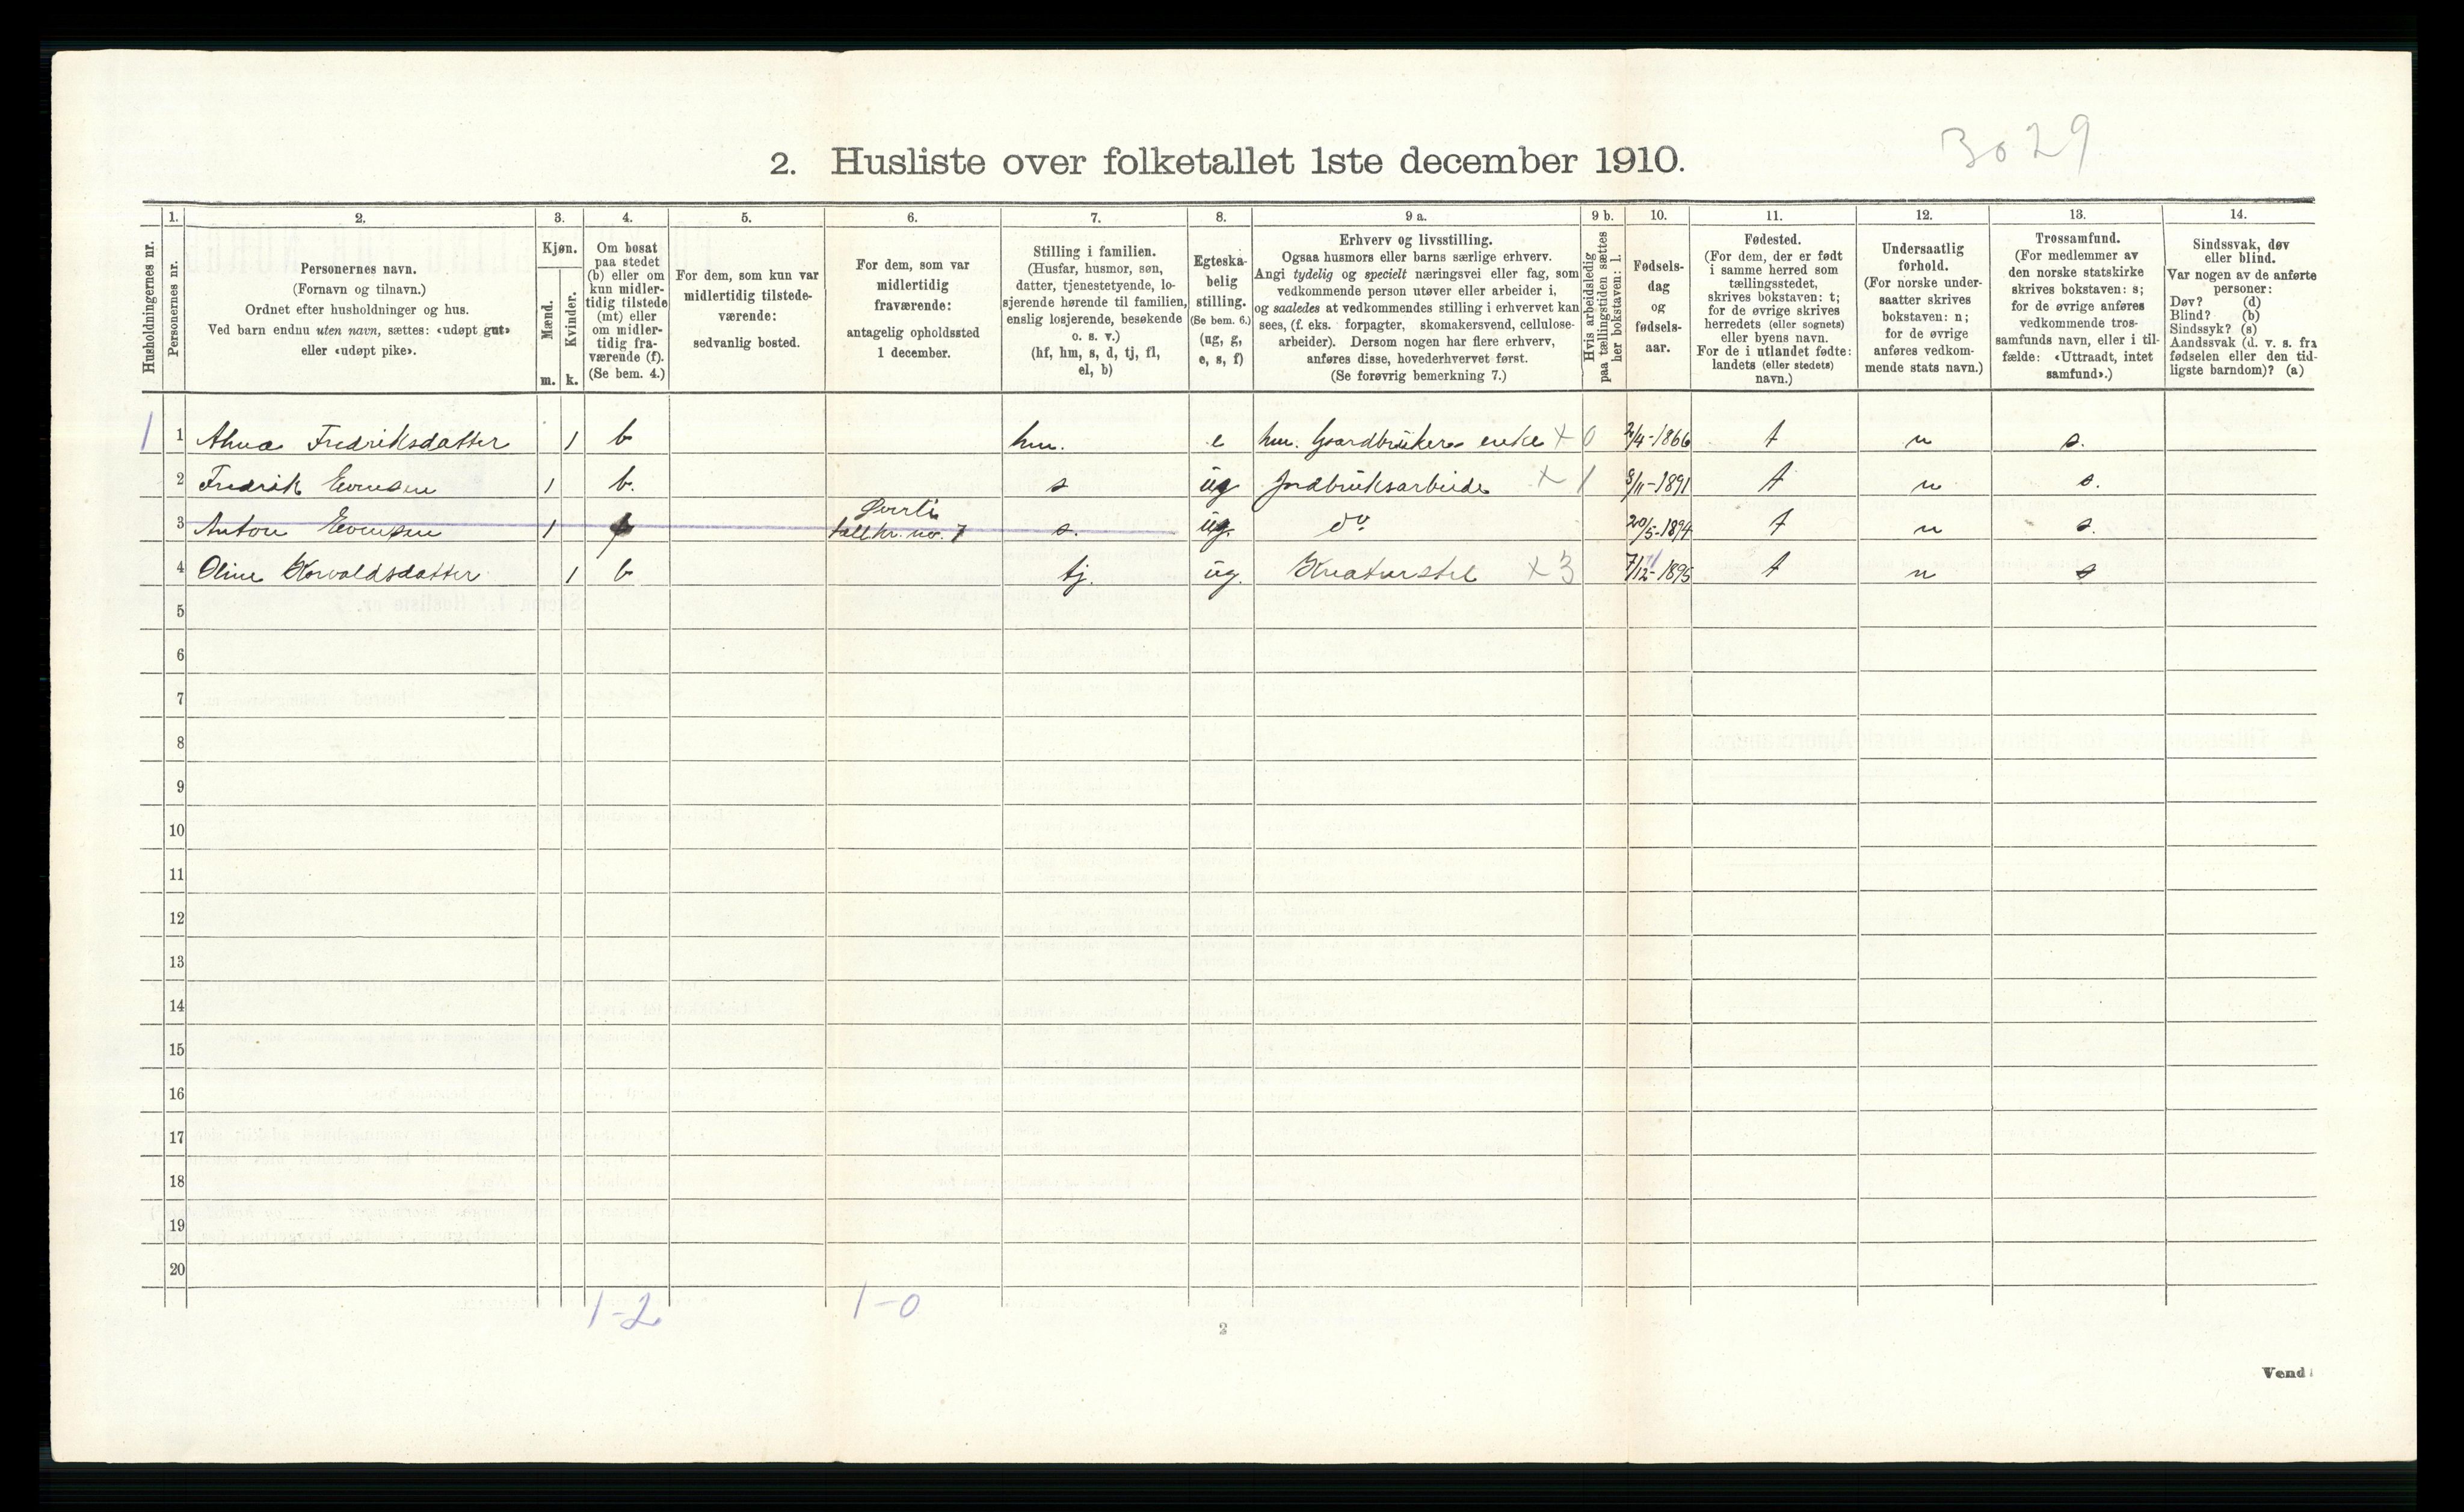 3029
2. Husliste over folketallet 1ste december 1910.
Husholdningernes nr.
1.
Personernes nr.
2.
Personernes navn.
(Fornavn og tilnavn.)
Ordnet efter husholdninger og hus.
Ved barn endnu uten navn, sættes: «udøpt gut»
eller «udøpt pike».
3.
Kjøn.
Mænd.
Kvinder.
m. k.
4.
Om bosat
paa stedet
(b) eller om
kun midler-
tidig tilstede
(mt) eller
om midler-
tidig fra-
værende (f).
(Se bem. 4.)
5.
For dem, som kun var
midlertidig tilstede-
værende:
sedvanlig bosted.
6.
For dem, som var
midlertidig
fraværende:
antagelig opholdssted
1 december.
7.
Stilling i familien.
(Husfar, husmor, søn,
datter, tjenestetyende, lo-
sjerende hørende til familien,
enslig losjerende, besøkende
o. s. v.)
(hf, hm, s, d, tj, fl,
el, b)
8.
Egteska-
belig
stilling.
(Se bem. 6.)
(ug, g,
e, s, f)
9 a.
Erhverv og livsstilling.
Ogsaa husmors eller barns særlige erhverv.
Angi tydelig og specielt næringsvei eller fag, som
vedkommende person utøver eller arbeider i,
og saaledes at vedkommendes stilling i erhvervet kan
sees, (f. eks. forpagter, skomakersvend, cellulose-
arbeider). Dersom nogen har flere erhverv,
anføres disse, hovederhvervet først.
(Se forøvrig bemerkning 7.)
9 b.
Hvis arbeidsledig
paa tællingstiden sættes
her bokstaven: l.
10.
Fødsels-
dag
og
fødsels-
aar.
11.
Fødested.
(For dem, der er født
i samme herred som
tællingsstedet,
skrives bokstaven: t;
for de øvrige skrives
herredets (eller sognets)
eller byens navn.
For de i utlandet fødte:
landets (eller stedets)
navn.)
12.
Undersaatlig
forhold.
(For norske under-
saatter skrives
bokstaven: n;
for de øvrige
anføres vedkom-
mende stats navn.)
13.
Trossamfund.
(For medlemmer av
den norske statskirke
skrives bokstaven: s;
for de øvrige anføres
vedkommende tros-
samfunds navn, eller i til-
fælde: «Uttraadt, intet
samfund».)
14.
Sindssvak, døv
eller blind.
Var nogen av de anførte
personer:
Døv? (d)
Blind? (b)
Sindssyk? (s)
Aandssvak (d. v. s. fra
fødselen eller den tid-
ligste barndom)? (a)
1 1 Fredriksdatter 1 b hm. e hm. Gaardbrukers enke x 0 2/4-1866 t n s.
2 Fredrik Evensen 1 b. s ug Jordbruksarbeide x 1 9/11-1891 t n s.
3 Anton Evensen 1 f tællkr. no. 7 s. ug. do 20/5-1894 t n s.
4 Oline Korvaldsdatter 1 b tj. ug. Kreaturstel x 3 7/12-1895 t n s
5
6
7
8
9
10
11
12
13
14
15
16
17
18
19
20
1-2 1-0
2
Vend